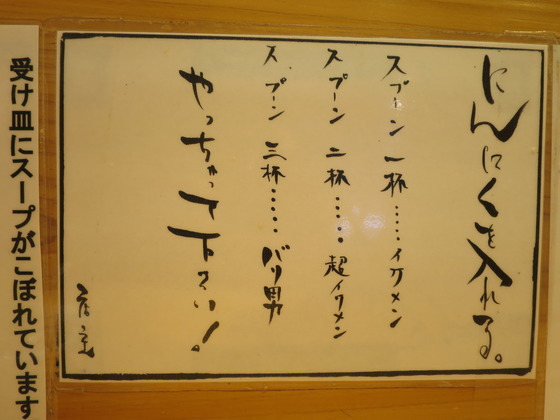 にんにくを入れる。
スプーン一杯……イケメン
スプーン二杯……超イケメン
スプーン三杯……バリ男
やっちゃって下さい!
店主
受け皿にスープがこぼれています